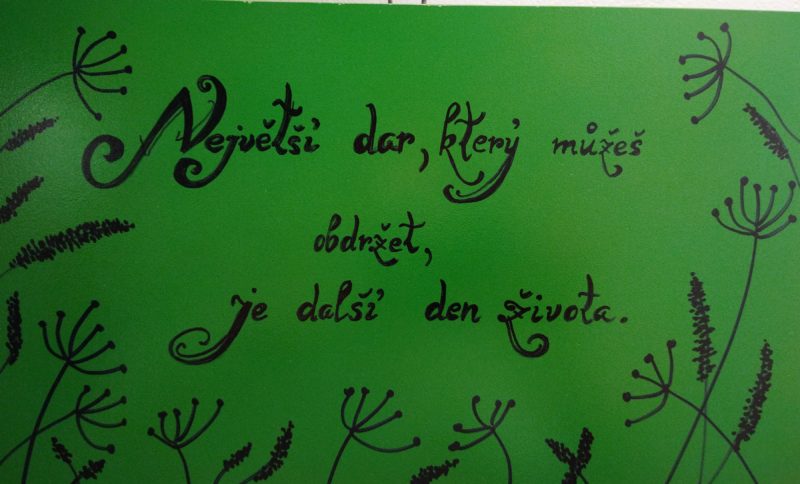 Největší dar, který můžeš
obdržet,
je další den života.